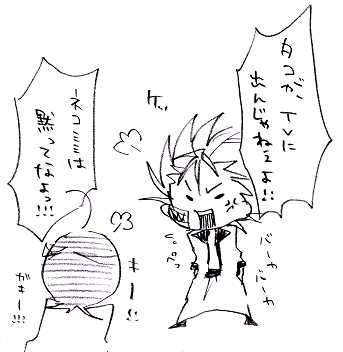 タコが、TVに
出んじゃねぇよ!!
ケッ
ネコミミは
黙ってなよっ!!!
バーカ
バーカ
キー!!
ガキー!!!